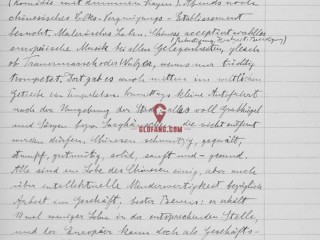 (Komödie mit dummen ). Abends noch
chinesisches Volks-Vergnügungs-Etablissement
besucht. Malerisches Leben. Chinese acceptiert wahllos
europäische Musik bei allen Gelegenheiten, gleich
ob Trauermarsch oder Walzer, wenns nur tüchtig
trompetet. Dort gab es noch mitten im wildesten
Getriebe ein Tempelchen. vormittags kleine Autofahrt
nach der Umgebung der Stadt, alles voll Grabhügel
und Särgen bezw. die nicht entfernt
werden dürfen. Chinesen schmutzig, gequält,
stumpf, gutmütig, solid, sanft und – gesund.
Alle sind im Lobe des Chinesen einig, aber auch
über intellektuelle Minderwertigkeit bezüglich
Arbeit im Geschäft, bester Beweis: er erhält
mal weniger Lohn in der entsprechenden Stelle,
und der Europäer kann doch als Geschäfts-
GLOFANG.COM